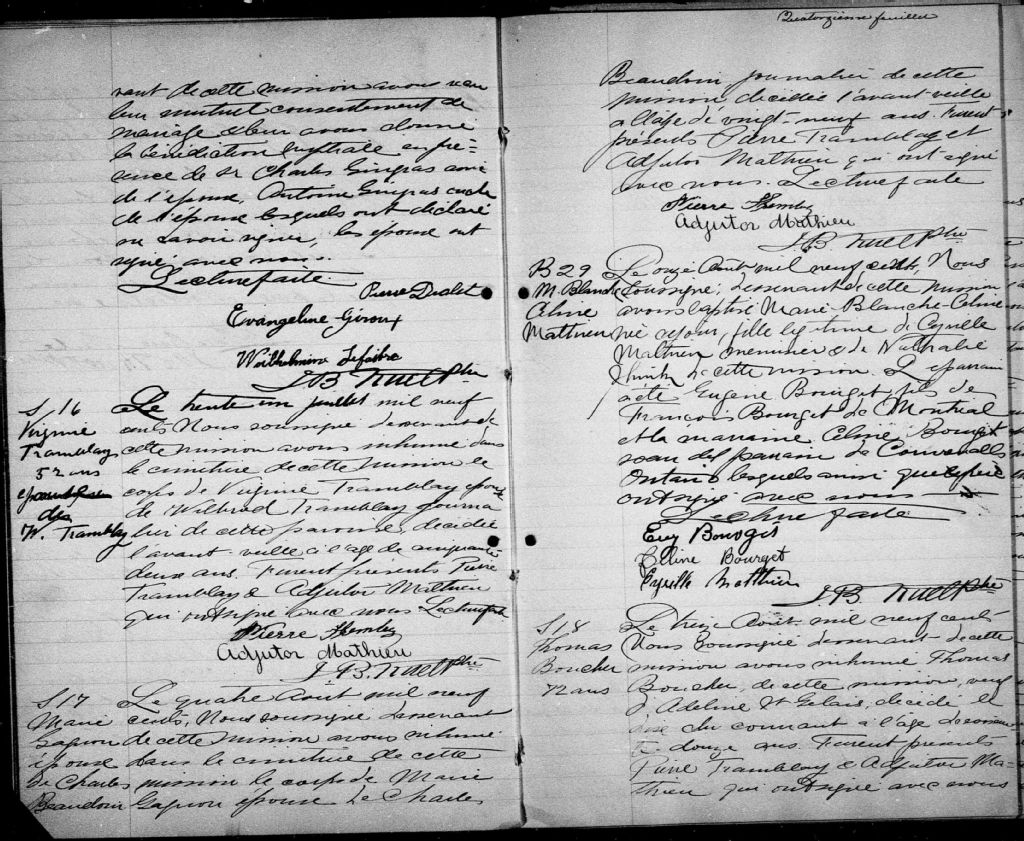 vant de cette mission avons reçu
leur mutuel consentement de
mariage & leur avons donné
la bénédiction nuptiale en pré=
sence de Sr Charles Gingras ami
de l'épouse, Antoine Gingras oncle
de l'épouse lesquels ont déclaré
ne savoir signer, les époux ont
signé avec nous.
Lecture faite.
Pierre Drolet
Evangeline Giroux
Wilhelmine Lefaibre
J B Ptre
S, 16
Virginie
Tramblay
52 ans
épouse
de
W. Tramblay
Le trente un juillet mil neuf
cents Nous soussigné desservant de
cette mission avons inhumé dans
le cimetière de cette mission le
corps de Virginie Tramblay épouse
de Wilbrod Tramblay journa
lier de cette paroisse, décédée
l'avant-veille à l'age de cinquante
deux ans. Furent présents Pierre
Tramblay & Adjutor Mathieu
qui ont signé avec nous Lecture faite
Pierre
Adjutor Mathieu
J B. Ptre
S 17
Marie
Gagnon
épouse
de Charles
Beaudoin
Le quatre Août mil neuf
cents, Nous soussigné desservant
de cette mission avons inhumé
dans le cimetière de cette
mission le corps de Marie
Gagnon épouse de Charles
Quatorzième feuillet
Beaudoin journalier de cette
mission, décédée l'avant-veille
à l'age de vingt-neuf ans. Furent
présents Pierre Tramblay et
Adjutor Mathieu qui ont signé
avec nous. Lecture faite
Pierre
Adjutor Mathieu
J B. Ptre
B 29
M. Blanche
Celine
Mathieu
Le onze Août mil neuf cents, Nous
soussigné, desservant de cette mission
avons baptisé Marie-Blanche-Celine
née ce jour, fille légitime de Cyrille
Mathieu menuisier & de Nathalie
de cette mission. Le parrain
a été Eugène Bourget fils de
François Bourget de Montréal
et la marraine Céline Bourget
soeur du parrain de Cornwall
Ontario lesquels ainsi que le père
ont signé avec nous
Lecture faite
Eug Bourget
Céline Bourget
Cyrille Matthieu
J. B. Ptre
S 18
Thomas
Boucher
72 ans
Le treize Août mil neuf cents
Nous Soussigné desservant de cette
mission avons inhumé Thomas
Boucher, de cette mission, veuf
d'Adeline St Gelais, décédé le
onze du courant à l'age de soixan
te douze ans. Furent présents
Pierre Tramblay & Adjutor Ma-
thieu qui ont signé avec nous